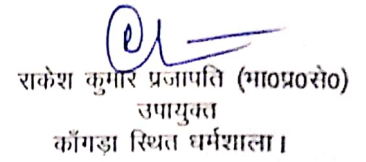 राकेश कुमार प्रजापति (भा०प्र०से०)
उपायुक्त
काँगड़ा स्थित धर्मशाला।